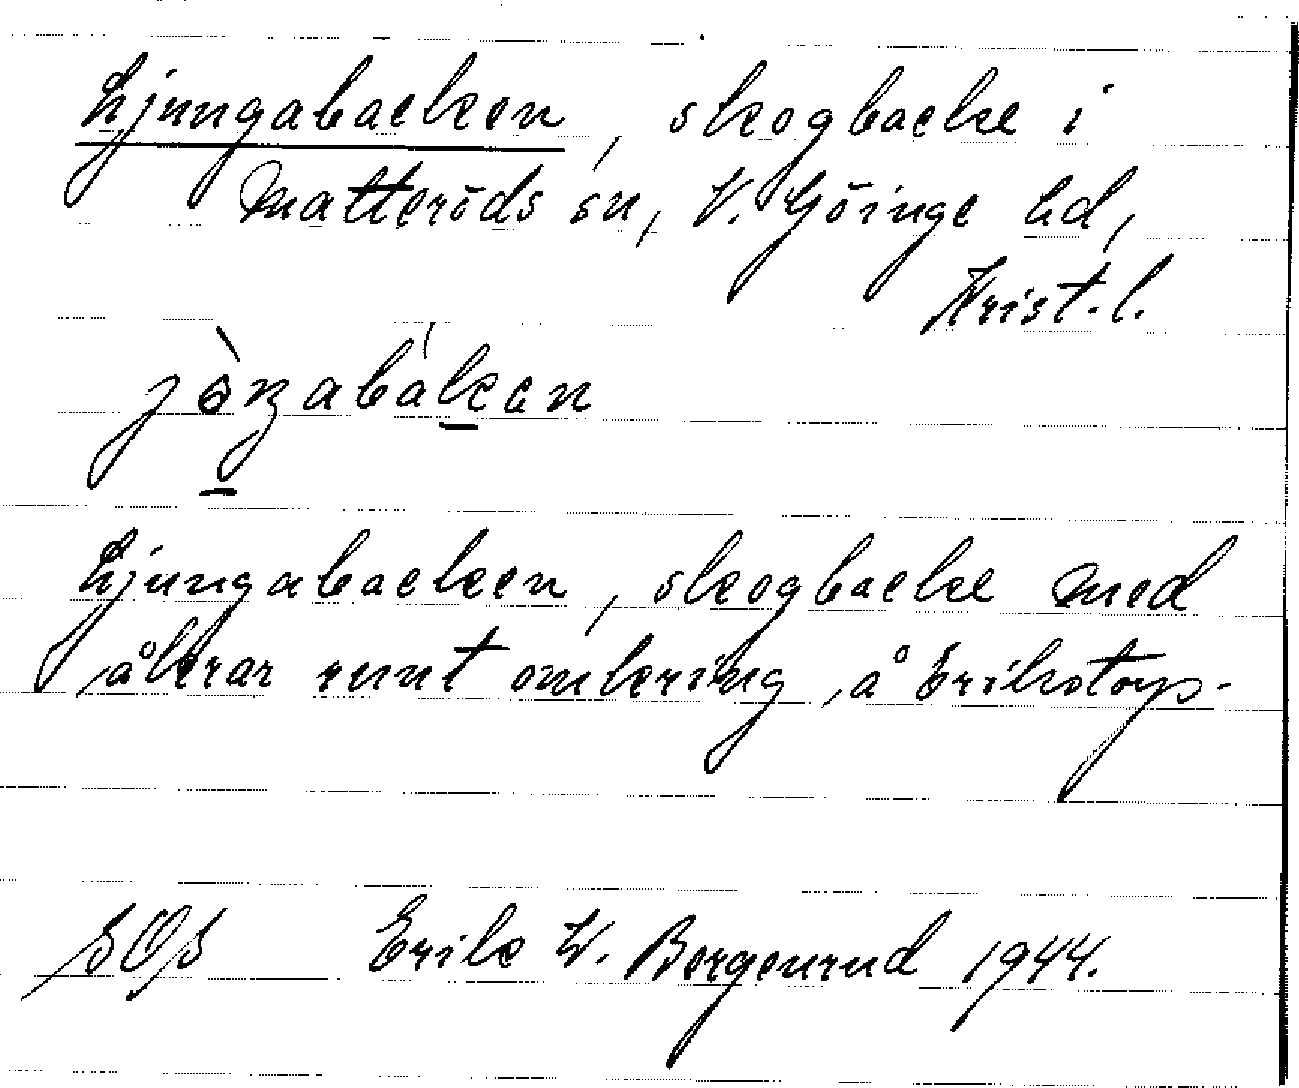 Ljungabacken, skogbacke i
Matteröds sn, V. Göinge hd,
Krist.l.
Ljungabacken, skogbacke med
åkrar runt omkring, å Erikstorp.
SOS Erik W. Bergenrud 1944.